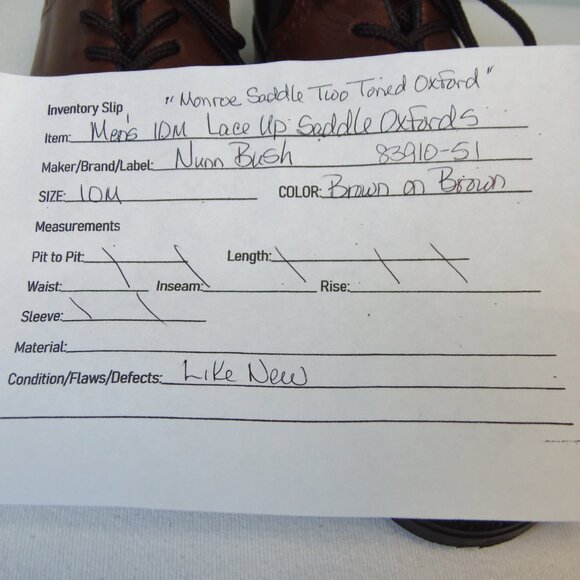 Inventory Slip "Monroe Saddle Two Toned Oxford"
Item: Men's 10M Lace Up Saddle Oxfords
Maker/Brand/Label: Nunn Bush 83910-51
SIZE: 10M COLOR: Brown on Brown
Measurements
Pit to Pit: Length:
Waist: Inseam: Rise:
Sleeve:
Material:
Condition/Flaws/Defects: Like New